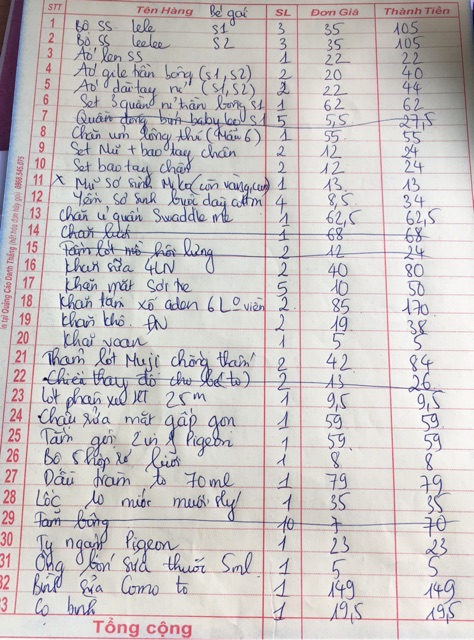 STT Tên Hàng Bé gái SL Đơn Giá Thành Tiền
1 Bộ SS lele S1 3 35 105
2 Bộ SS leelee S2 3 35 105
3 Áo len SS 1 22 22
4 Áo gile trần bông (S1, S2) 2 20 40
5 Áo dài tay nỉ (S1, S2) 2 22 44
6 Set 3 quần nỉ trần bông S1 1 62 62
7 Quần đóng bỉm baby leo S1 5 5,5 27,5
8 Chăn ủ lông thú (Mẫu 6) 1 55 55
9 Set Mũ + bao tay chân 2 12 24
10 Set bao tay chân 2 12 24
11 x Mũ sơ sinh 1 13 13
12 Yếm sơ sinh buộc dây 4 8,5 34
13 Chăn ủ quấn Swaddle me 1 62,5 62,5
14 Chăn lưới 1 68 68
15 Tấm lót mồ hôi lưng 2 12 24
16 Khăn sữa 4LN 2 40 80
17 Khăn mặt Sợi tre 5 10 50
18 Khăn tắm xô aden 6 Lớp viền 2 85 170
19 Khăn khô 2 19 38
20 Khai voan 1 5 5
21 Thảm lót Muji chống thấm 2 42 84
22 Chiếu thay đồ cho bé (to) 2 13 26
23 Lót phân xu 25m 1 9,5 9,5
24 Chậu rửa mặt gấp gọn 1 59 59
25 Tắm gội 2 in 1 Pigeon 1 59 59
26 Bộ 5 hộp lưới 1 8 8
27 Dầu tràm to 70ml 1 79 79
28 Lốc to nước muối 1 35 35
29 Tăm bông 10 7 70
30 Ty ngậm Pigeon 1 23 23
31 Ống bón sữa thuốc 5ml 1 5 5
32 Bình sữa Como to 1 149 149
33 Cọ bình 1 19,5 19,5
Tổng cộng